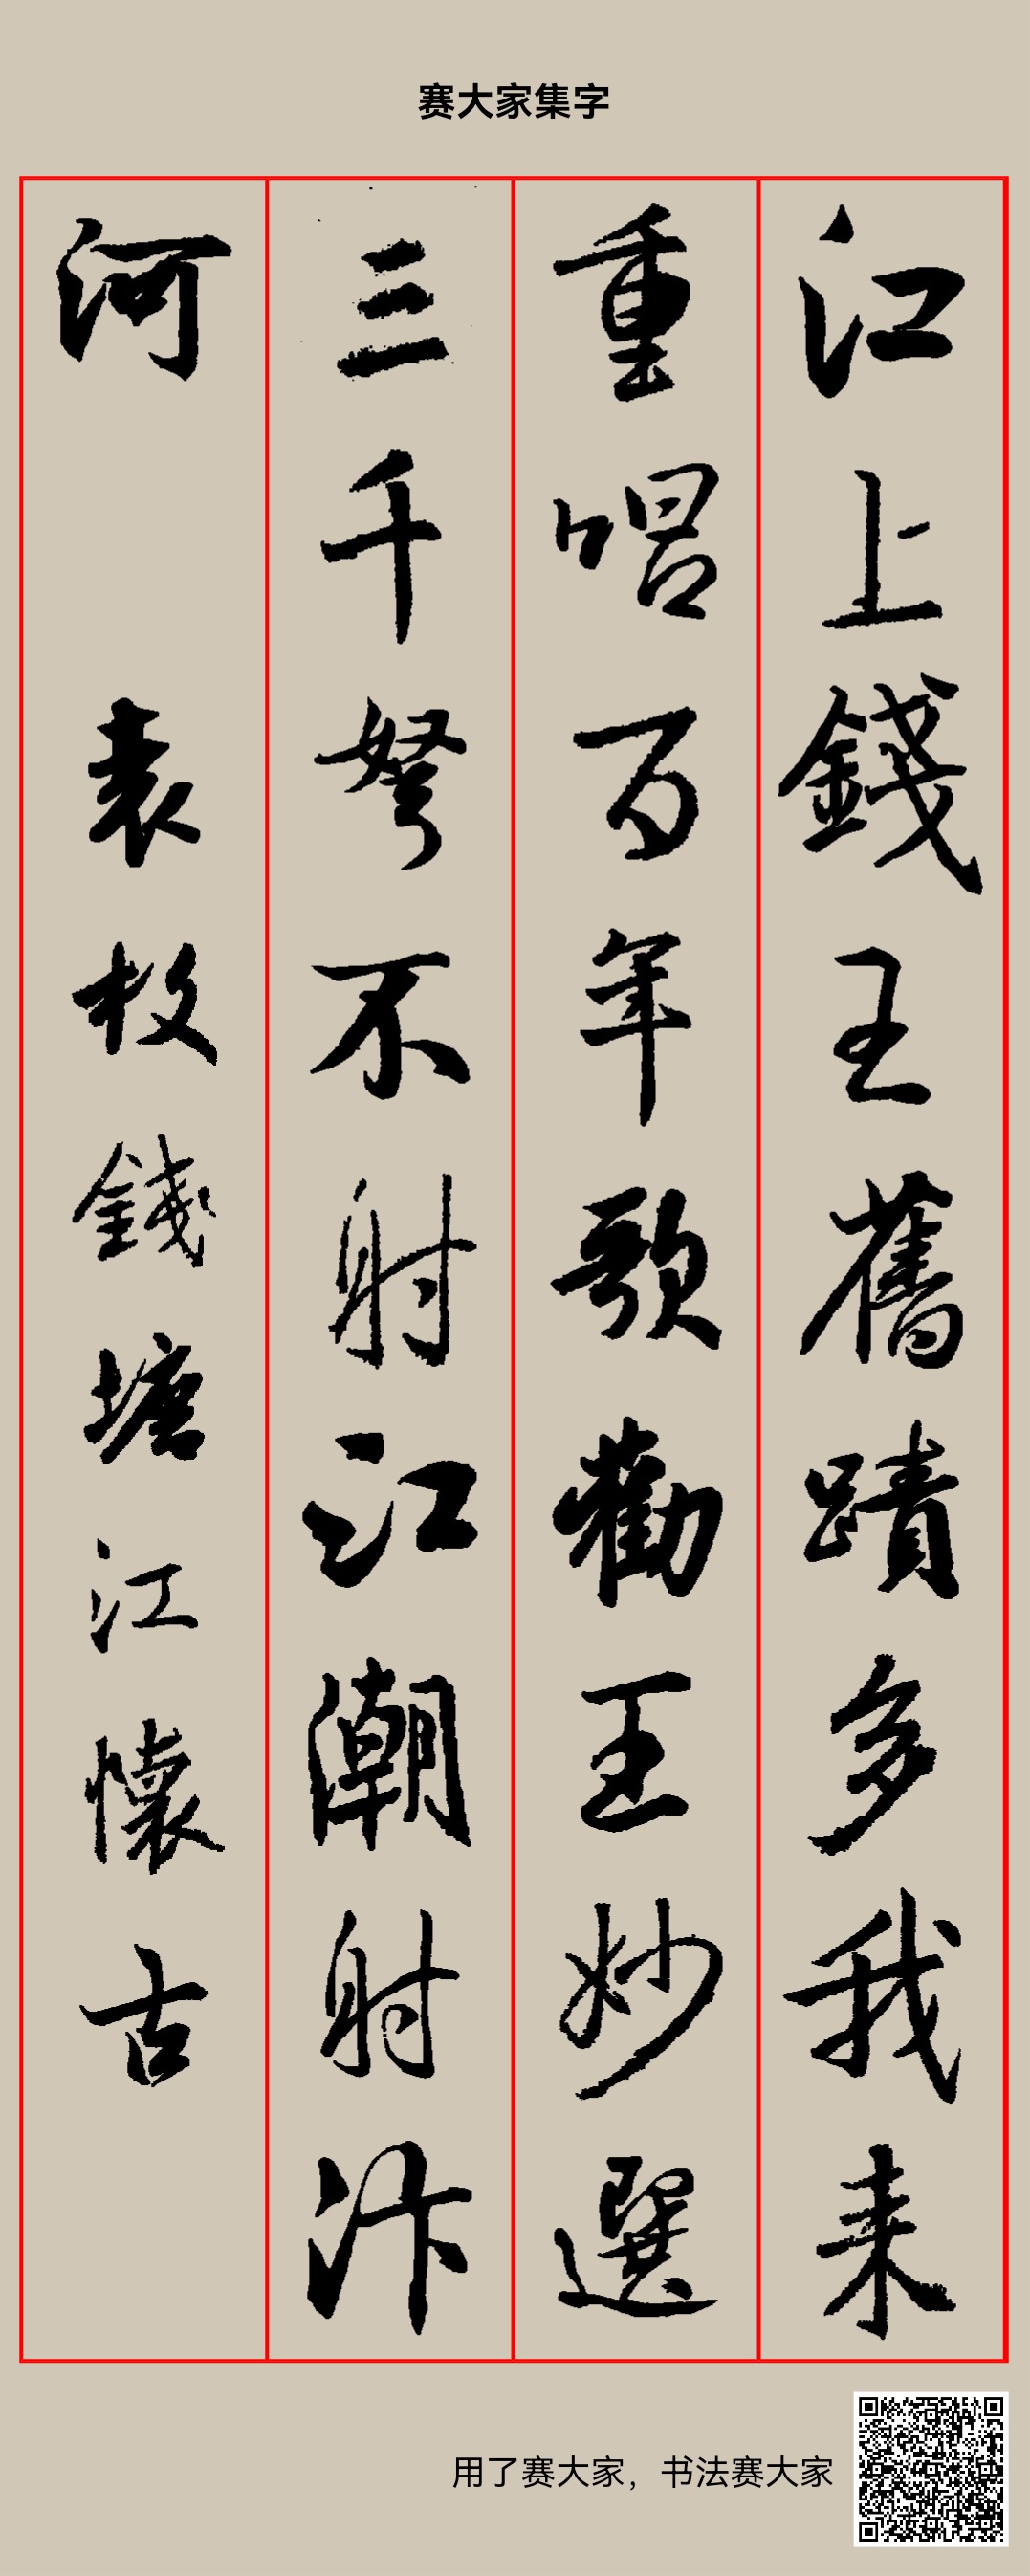 赛大家集字
江上錢王舊蹟多我来
重唱百年歌勸王妙選
三千弩不射江潮射汴
河 袁枚錢塘江懷古
用了赛大家，书法赛大家